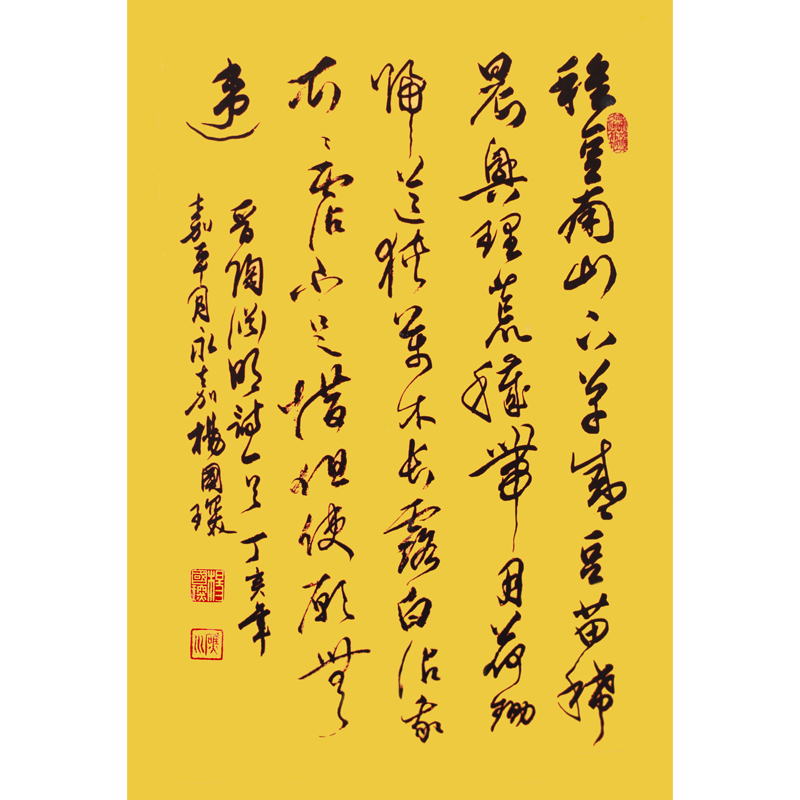 種豆南山下草盛豆苗稀
晨興理荒穢帶月荷鋤
歸道狹草木長露白沾我
衣〻沾不足惜但使願無
違
晉陶淵明詩一首丁亥年
嘉平月永嘉楊國